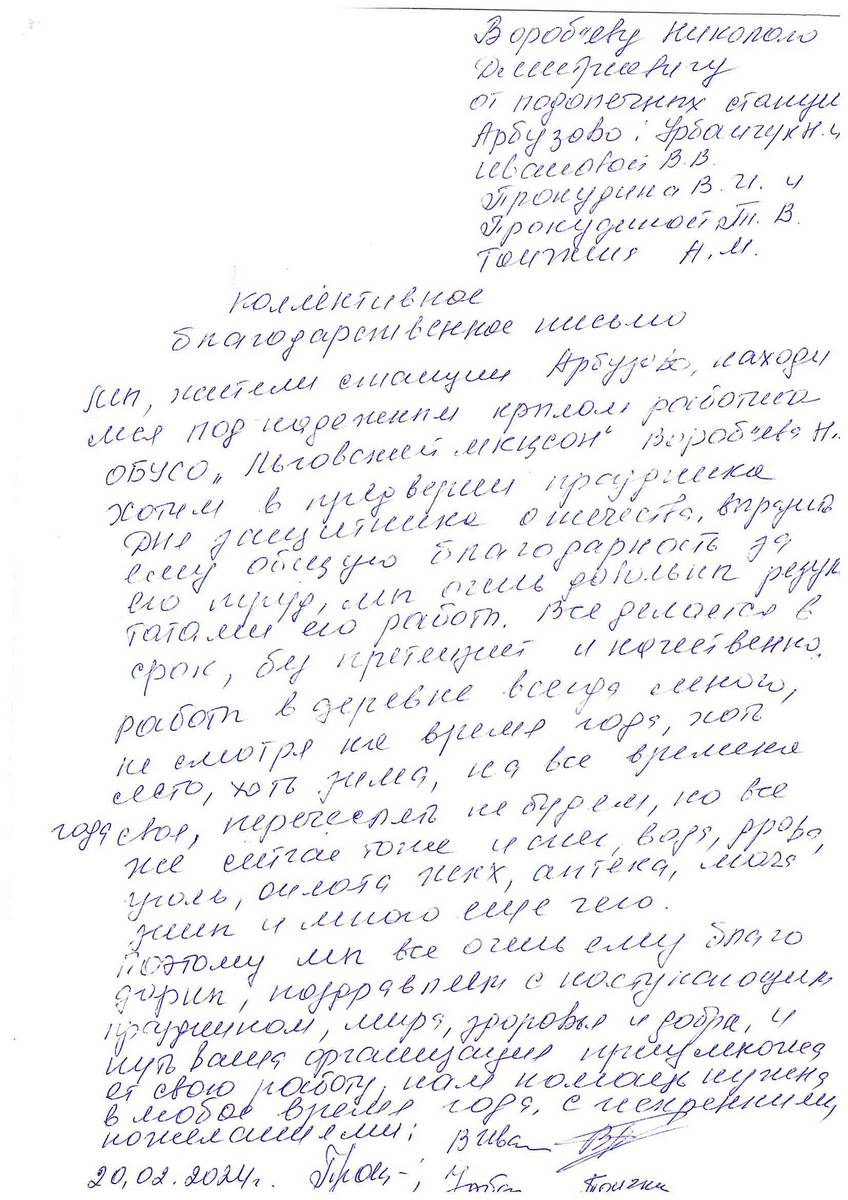 Воробьеву Николаю
Дмитриевичу
от подопечных станции
Арбузово: Урбанчук Н. и
Ивановой В.В.
Прокудина В. И. и
Прокудиной Т. В.
Н. М.
коллективное
благодарственное письмо
Мы, жители станции Арбузово, находи
мся под надежным крылом работника
ОБУСО „Льговский мкцсон" Воробьева Н.
хотим в предверии праздника
Дня защитника отечества, выразить
ему общую благодарность за
его труд, мы очень довольны резул
татами его работы. Все делается в
срок, без претензий и качественно.
работы в деревне всегда много,
не смотря на время года, хоть
лето, хоть зима, на все времена
года свое, перечеслять не будем, но все
же сейчас тоже и снег, вода, дрова,
уголь, оплата жкх, аптека, мага
зин и много еще чего.
Поэтому мы все очень ему благо
дарны, поздравляем с наступающим
праздником, мира, здоровья и добра, и
пусть ваша организация приумножа
ет свою работу, нам помощь нужна
в любое время года. с искренними
пожеланиями:
20.02.2024г.